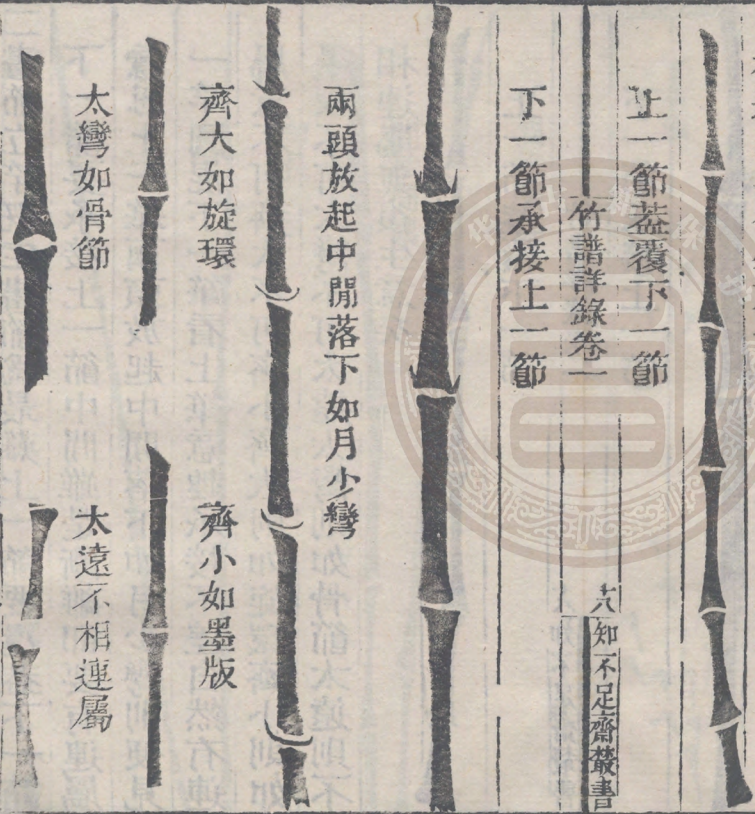 上一節蓋覆下一節
竹譜詳錄卷一
十八
知不足齋叢書
下一節承接上一節
兩頭放起中閒落下如月少彎
齊大如旋環
齊小如墨版
太彎如骨節
太遠不相連屬